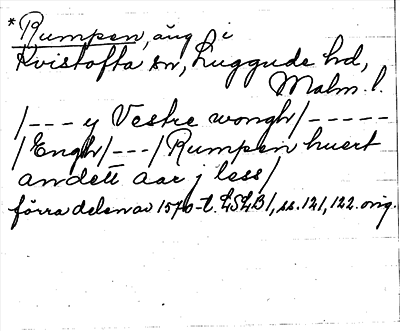 *Rumpen, äng i
Kvistofta sn, Luggude hd,
Malm. l.
/--- y Vestre wongh/-----
/Engh/---/Rumpen huert
andett aar j less/
förra delen av 1570-t. LSLB 1, ss. 121, 122. orig.